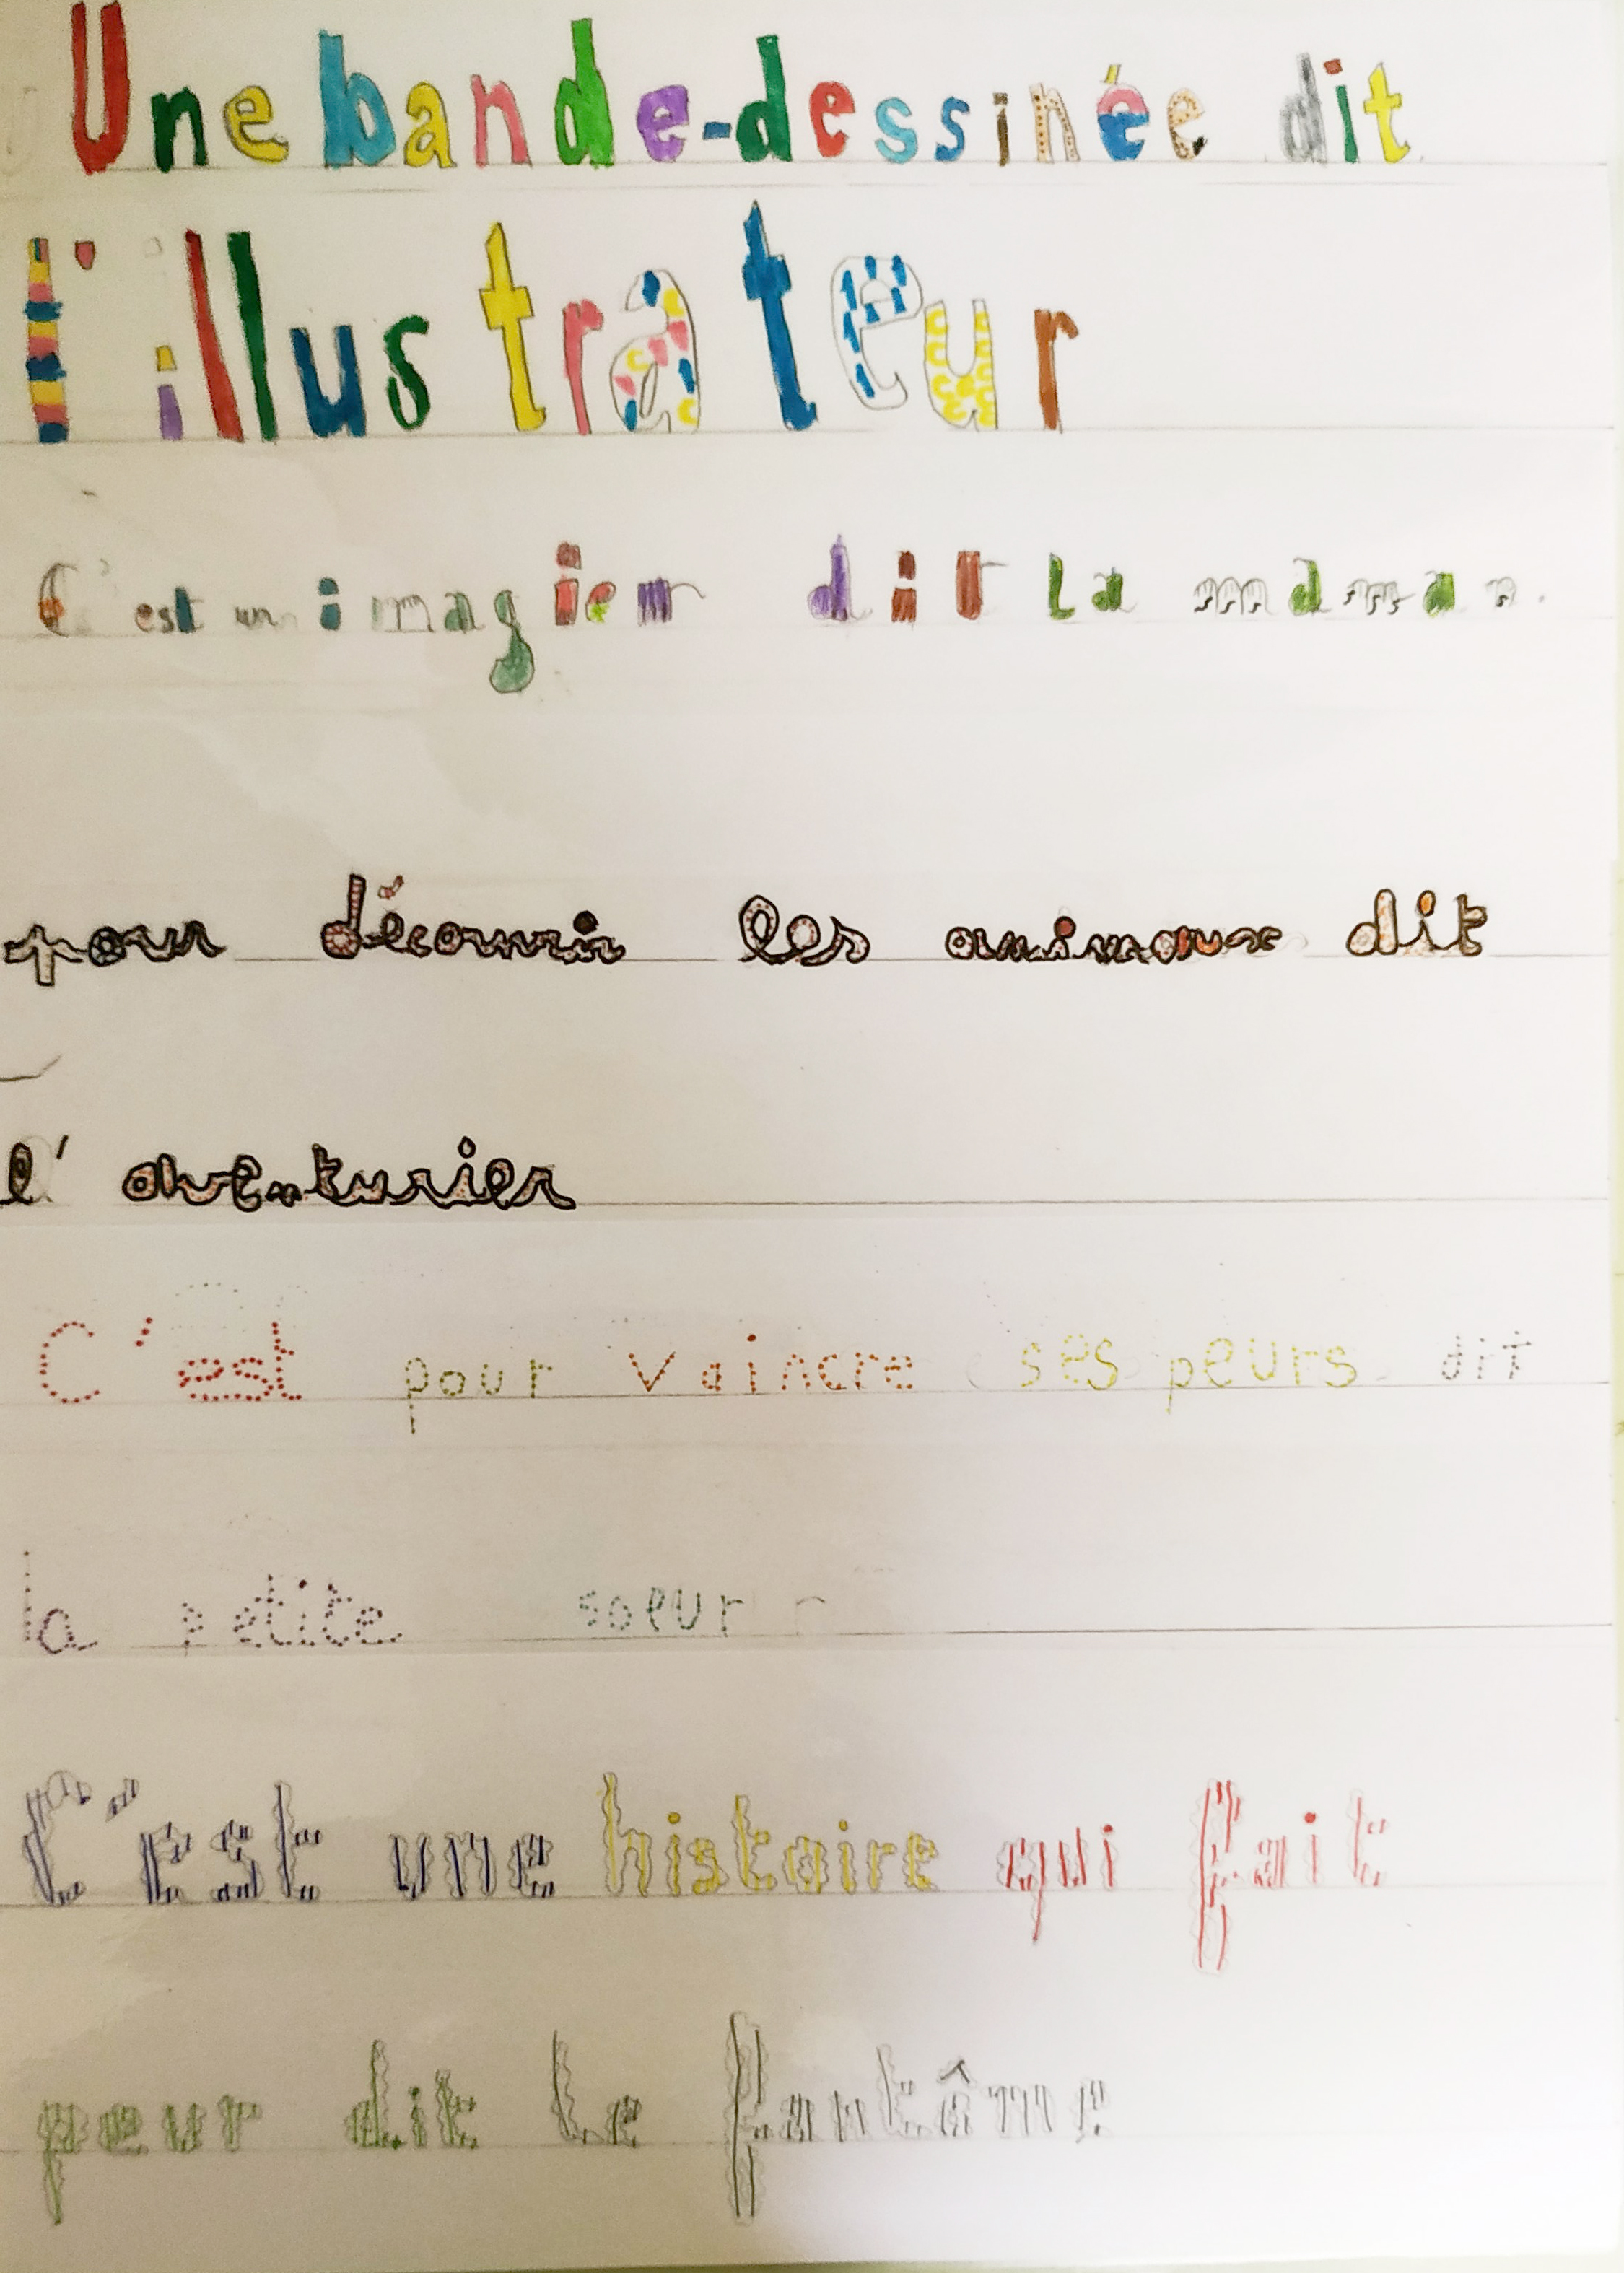 Une bande-dessinée dit
l'illustrateur
C'est un imagier dit La maman.
pour découvrir les animaux dit
l'aventurier
C'est pour vaincre ses peurs dit
la petite soeur
C'est une histoire qui fait
peur dit le fantôme